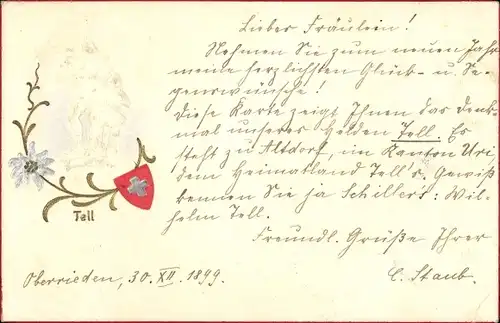 Liebes Fräulein!
Nehmen Sie zum neuen Jahr
meine herzlichsten Glück- u. Se-
genswünsche!
Diese Karte zeigt Ihnen das Denk-
mal unseres Helden Tell. Es
steht zu Altdorf, im Kanton Uri
dem Heimatland Tell's. Gewiß
kennen Sie ja Schillers: Wil-
helm Tell.
Freundl. Grüße Ihrer
C. Staub.
Tell
Oberrieden, 30. XII. 1899.